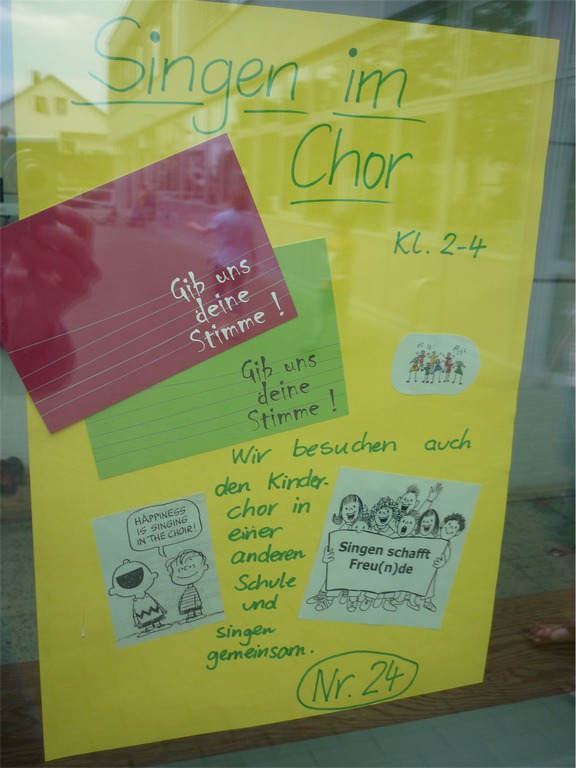 Singen im
Chor
Kl. 2-4
Gib uns
deine
Stimme!
Gib uns
deine
Stimme!
Wir besuchen auch
den Kinder-
chor in
einer
anderen
Schule
und
singen
gemeinsam.
HAPPINESS
IS SINGING
IN THE CHOIR!
Singen schafft
Freu(n)de
Nr. 24